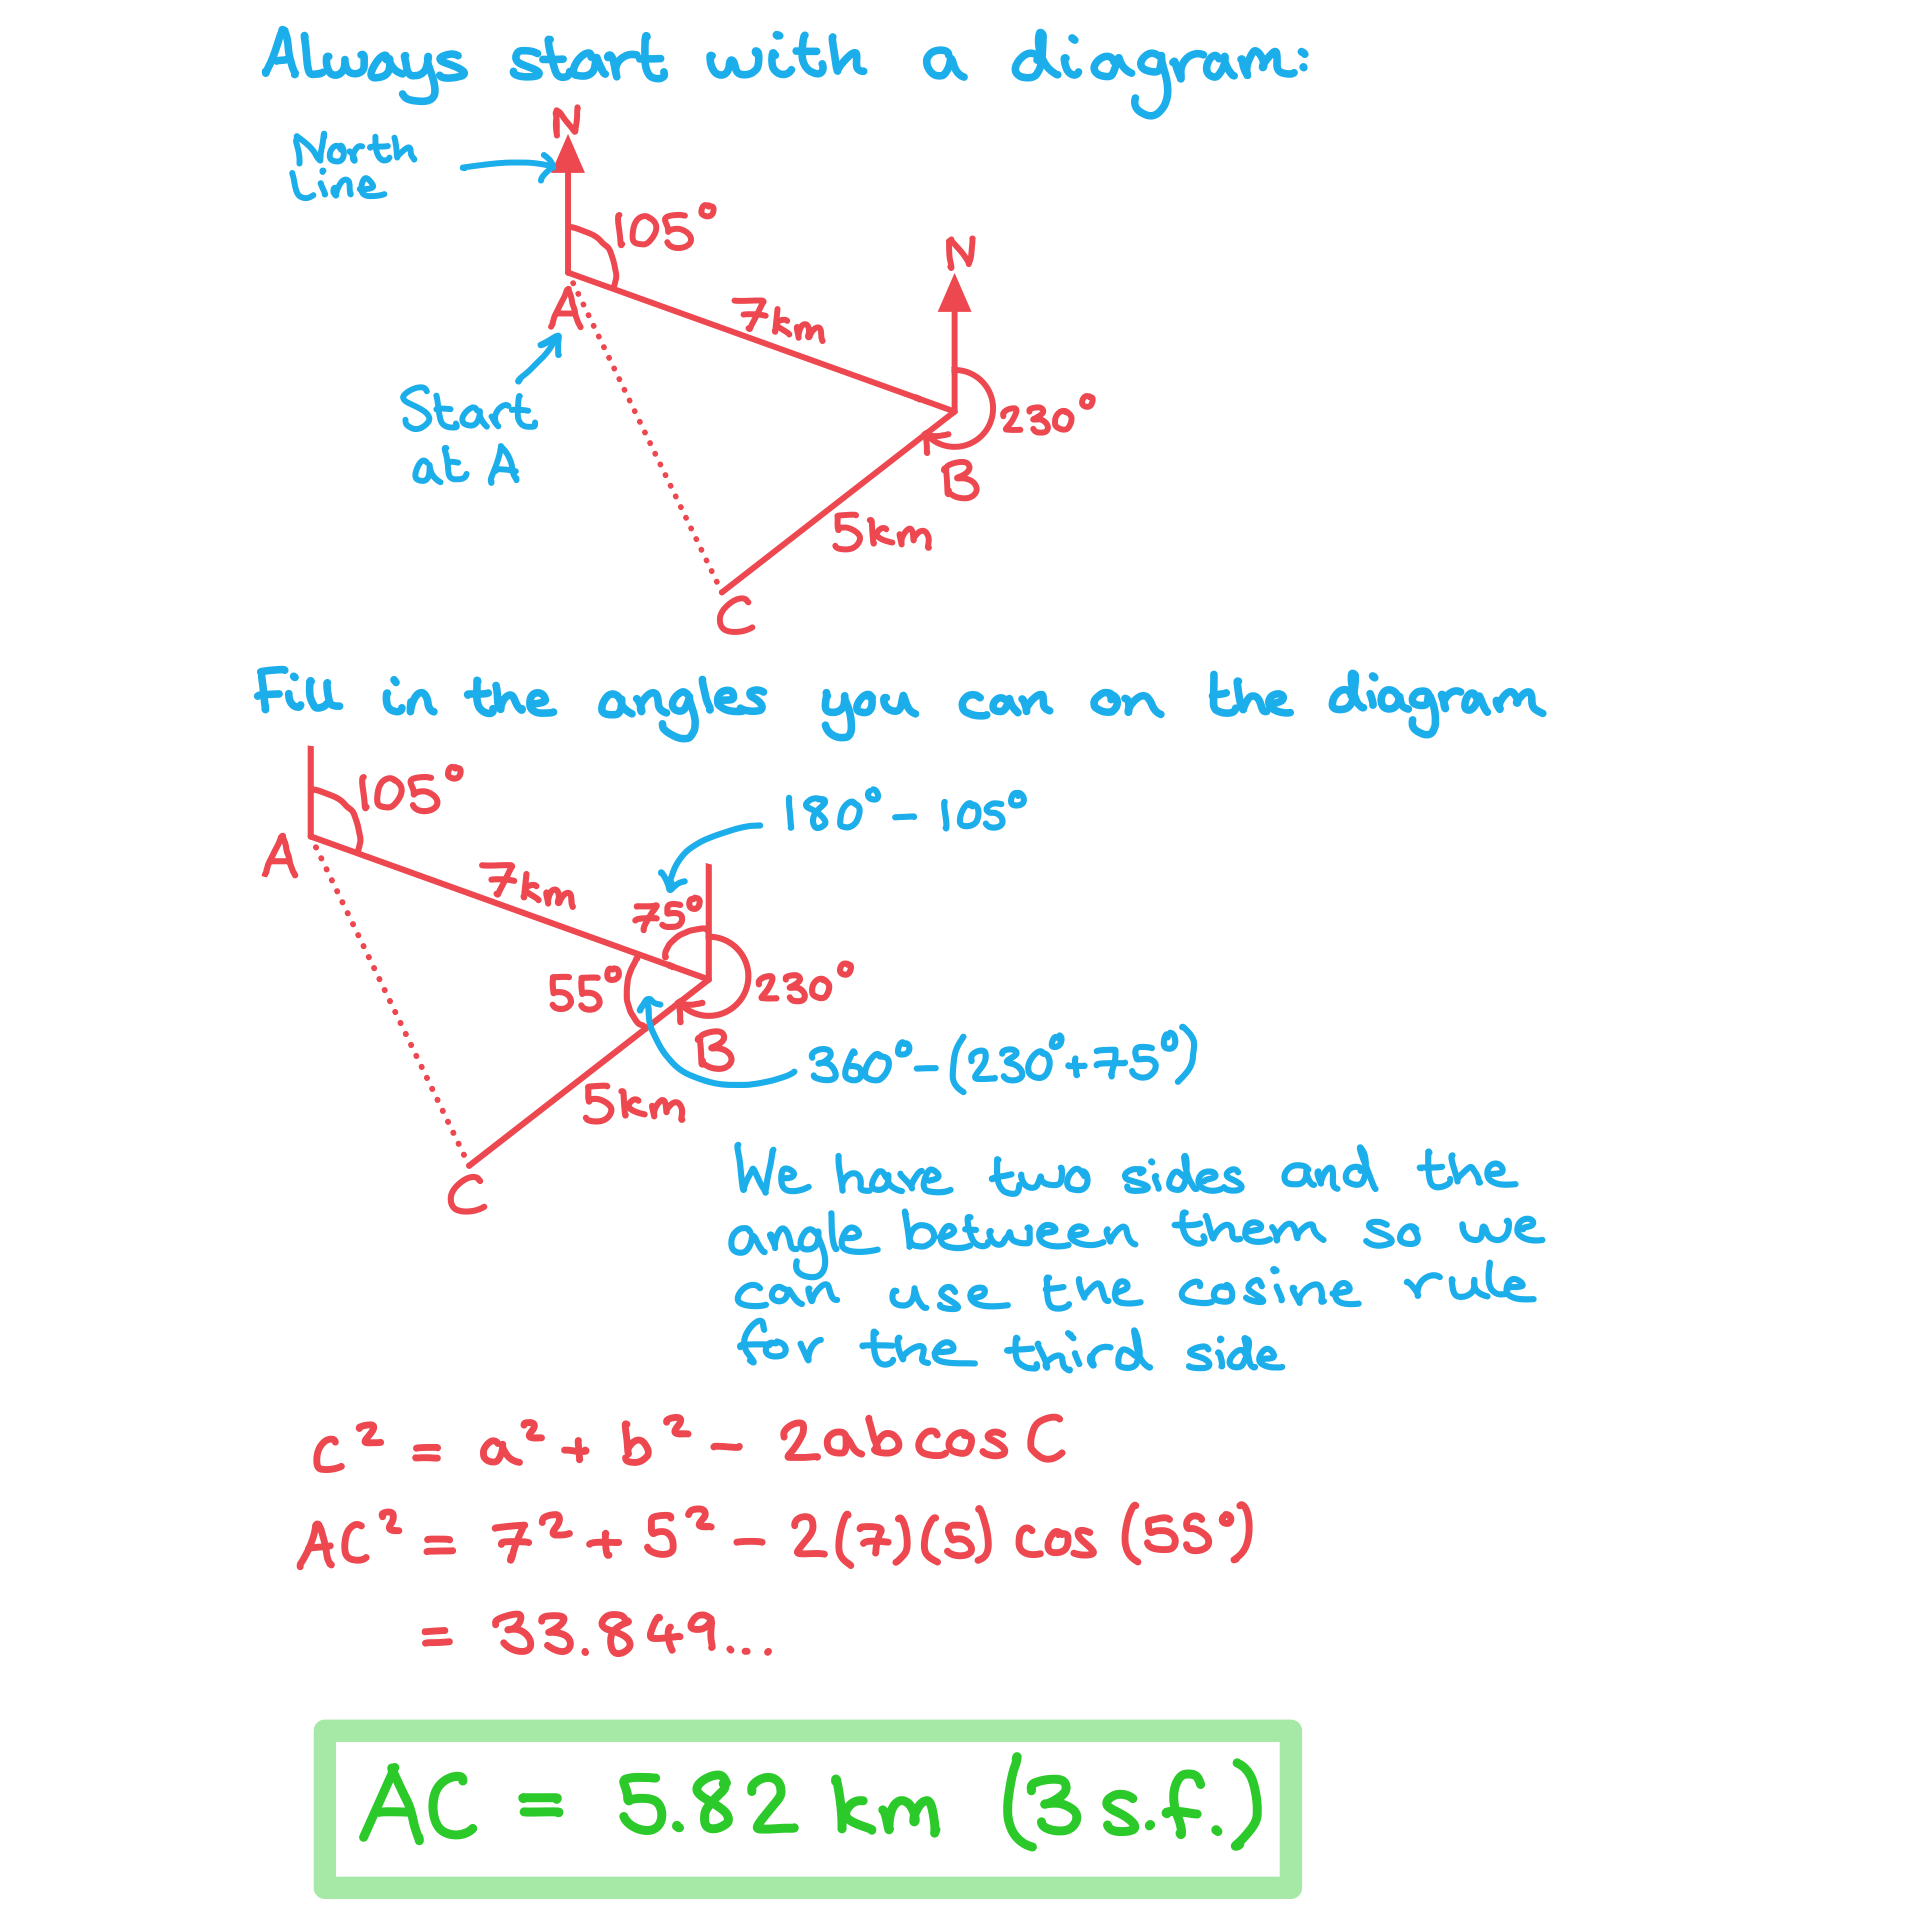 Always start with a diagram:
N
North
Line
105°
N
A
7km
Start
at A
230°
B
5km
C
Fill in the angles you can on the diagram
105°
180° - 105°
A
7km
75°
55°
230°
B
360° - (230° + 75°)
5km
C
We have two sides and the
angle between them so we
can use the cosine rule
for the third side
c² = a² + b² - 2abcosC
AC² = 7² + 5² - 2(7)(5) cos (55°)
= 33.849...
AC = 5.82 km (3s.f.)